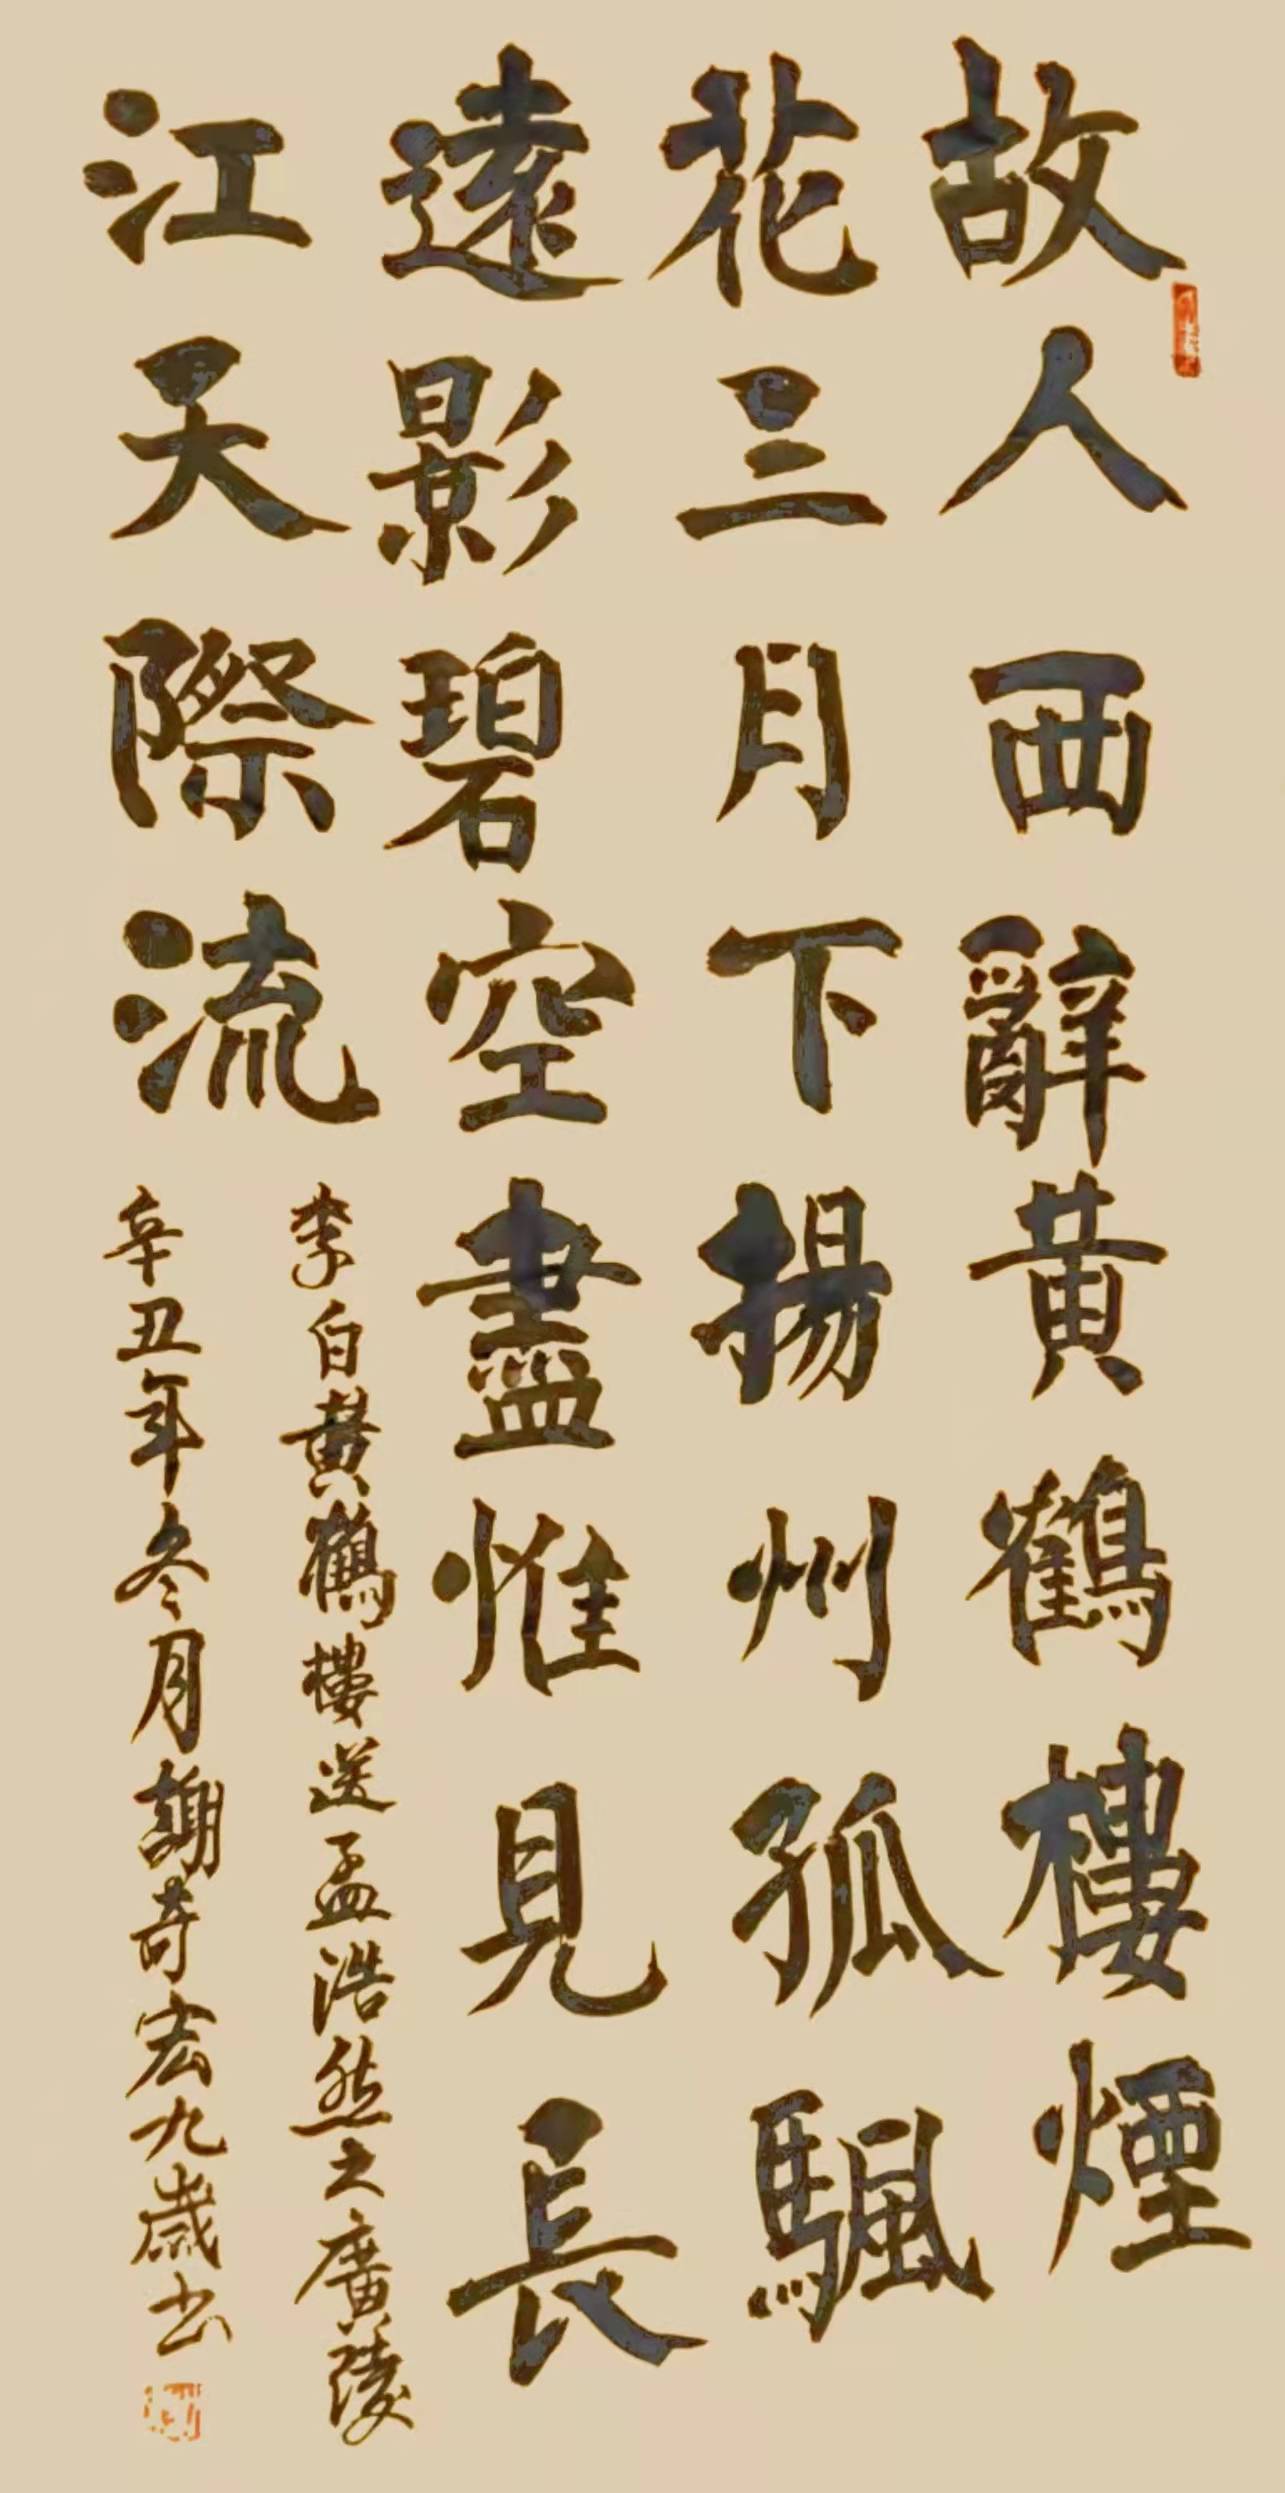 故人西辭黃鶴樓煙
花三月下揚州孤颿
遠影碧空盡惟見長
江天際流
李白黃鶴樓送孟浩然之廣陵
辛丑年冬月奇宏九歲书